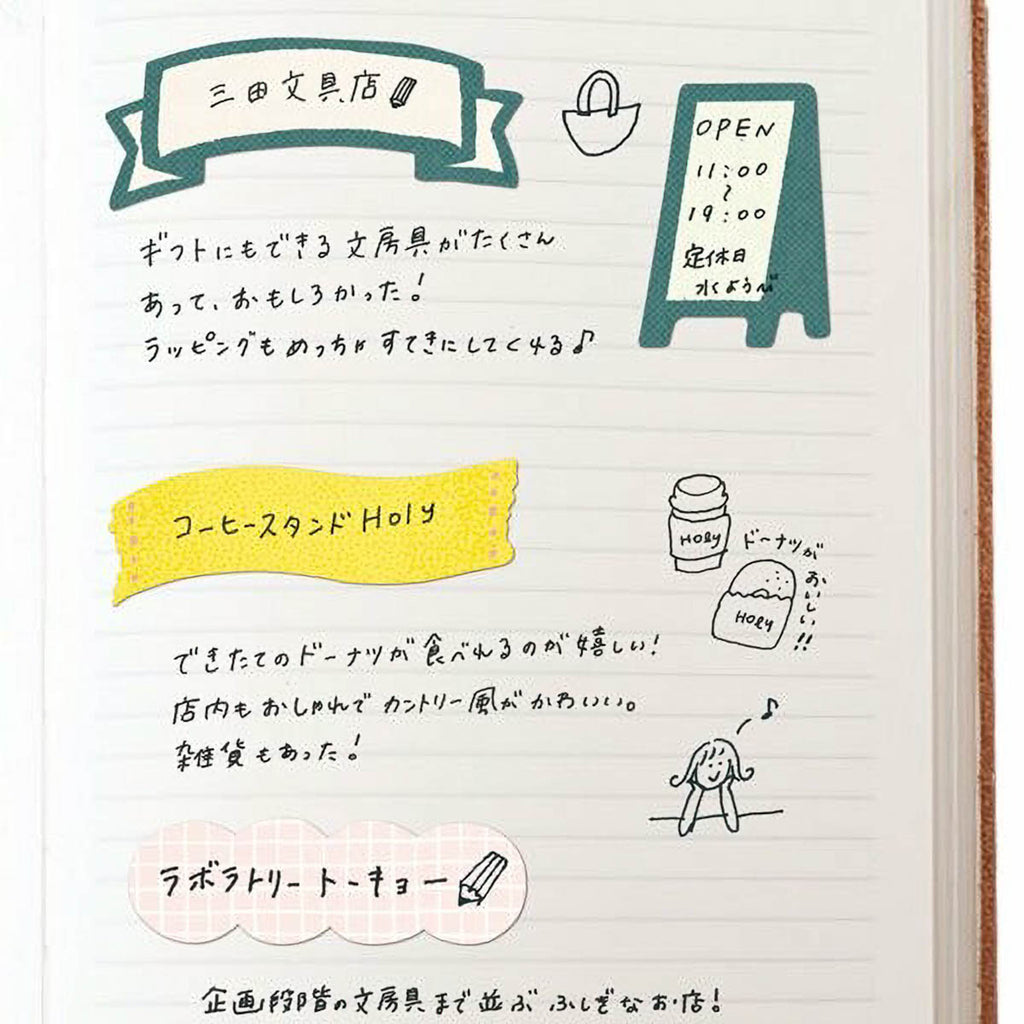 三田文具店
OPEN
11:00
〜
19:00
定休日
水ようび
ギフトにもできる文房具がたくさん
あって、おもしろかった！
ラッピングもめっちゃすてきにしてくれる♪
コーヒースタンドHoly
Holy
ドーナツが
おいしい!!
Holy
できたてのドーナツが食べれるのが嬉しい！
店内もおしゃれでカントリー風がかわいい。
雑貨もあった！
ラボラトリートーキョー
企画段階の文房具まで並ぶふしぎなお店！